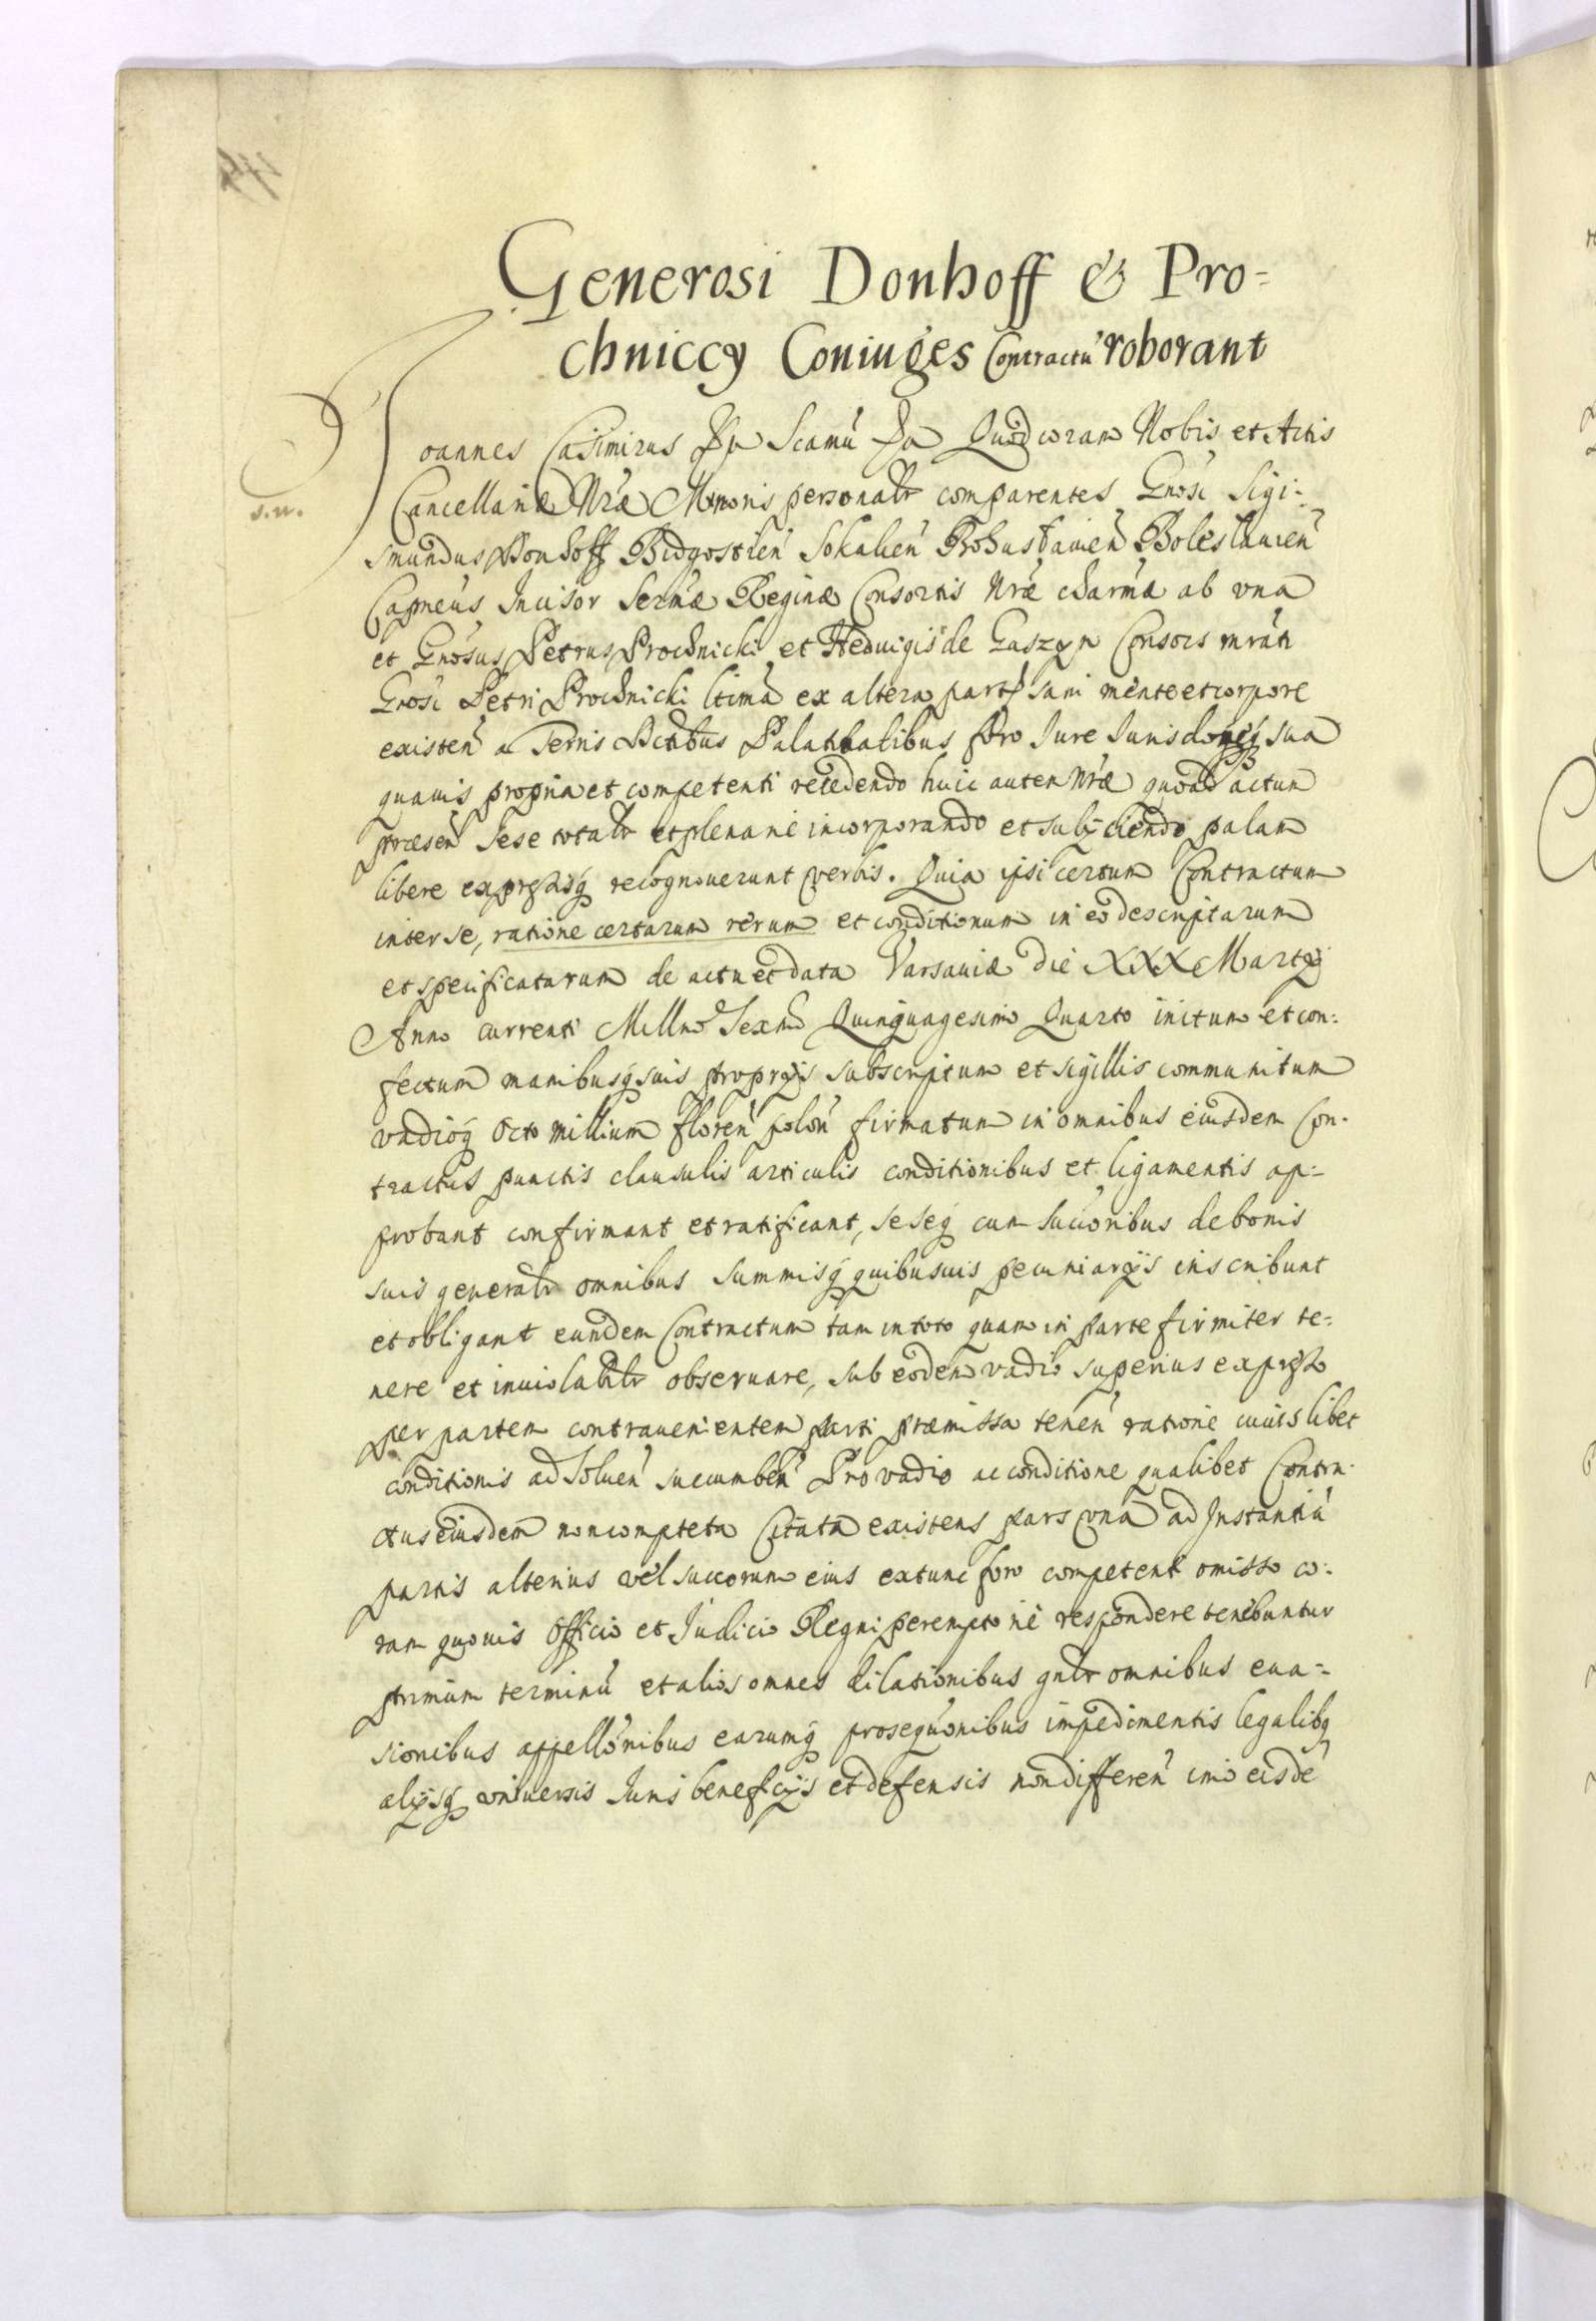 Generosi Donhoff & Pro=
chniccy Coniuges Contractu roborant
Joannes Casimirus Quod coram Nobis et Actis
s.n.
Cancellariæ Nræ Minoris personalr comparentes Gnosi Sigi=
smundus Donhoff Bidgostien Sokalien Boleslauien
Capneus Incisor Sermæ Reginæ Consortis Nræ charmæ ab vna
et Gnosus Petrus Prochnicki et Heduigis de Guszyn Consors
Gnosi Petri Prochnicki ltima ex altera part sani mente et corpore
existen a Terris Palatinalibus foro Jure sua
quauis propria et competenti recedendo huic autem Nræ quoad actum
præsen sese totalr et plenarie incorporando et subijciendo palam
libere expressisq recognouerunt verbis. Quia ipsi certum Contractum
inter se, ratione certarum rerum et conditionum in eo descriptarum
et specificatarum de actu et data Varsauiæ die XXX Martij
Anno currenti Millmo Sexmo Quinquagesimo Quarto initum et con=
fectum manibusq suis proprijs subscriptum et sigillis communitum
vadioq Octo millium floren polon firmatum in omnibus eiusdem Con-
tractus punctis clausulis articulis conditionibus et ligamentis ap=
probant confirmant et ratificant, seseq cum succoribus de bonis
suis generalr omnibus summisq quibusuis pecuniarijs inscribunt
et obligant eundem Contractum tam in toto quam in parte firmiter te=
nere et inuiolabilr obseruare, sub eodem vadio superius expresso
per partem contrauenientem parti præmissa tenen ratione cuiuslibet
conditionis ad soluen succumben Pro vadio ac conditione qualibet Contra-
ctus eiusdem non completa Citata existens pars vna ad Instantiã
partis alterius vel succorum eius extunc foro competenti omisso co=
ram quouis Officio et Judicio Regni peremptorie respondere tenebuntur
primum terminũ et alios omnes dilationibus gnlr omnibus eua=
sionibus appellonibus earumq prosequonibus impedimentis legalibq
alijsq vniuersis Juris beneficijs et defensis non differen imo eisdẽ